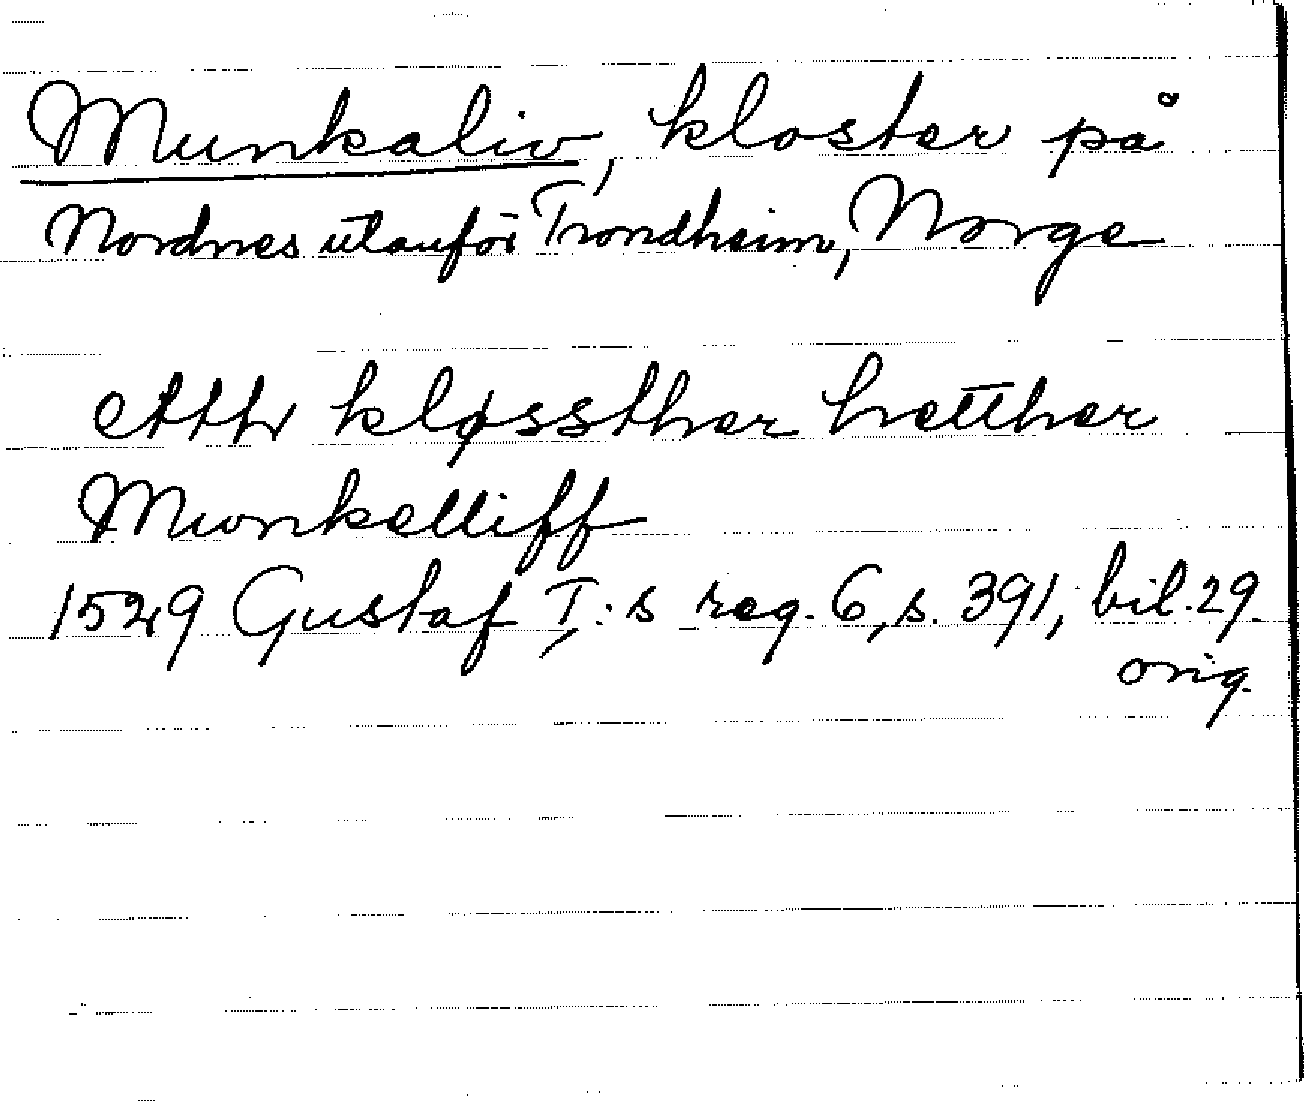 Munkaliv, kloster på
Nordnes utanför Trondheim, Norge
etth kløssther hetther
Mwnkelliff
1529 Gustaf I:s reg. 6, s. 391, bil. 29.
orig.